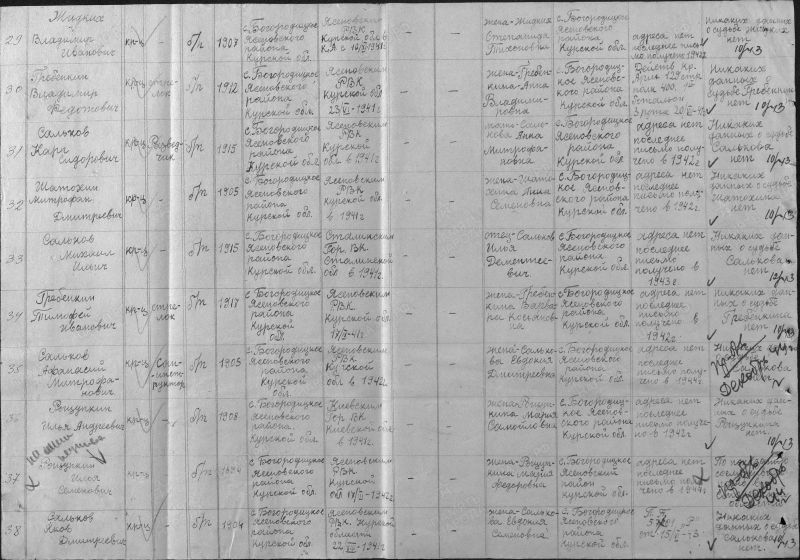 29 Жидких Владимир Иванович кр-ц - б/п 1907 с. Богородицкое Ясеновского района Курской обл. Ясеновским РВК Курской обл. - - жена-Жидких Степанида Тихоновна с. Богородицкое Ясеновского района Курской обл. адреса нет последнее письмо получено 1942г Никаких данных о судьбе Жидких нет 10/43
30 Гребенкин Владимир Федотович кр-ц стрелок б/п 1912 с. Богородицкое Ясеновского района Курской обл. Ясеновским РВК Курской обл. 23/VI-1941г - - жена-Гребенкина Анна Владимировна с. Богородицкое Ясеновского района Курской обл. Никаких данных о судьбе Гребенкина нет 10/43
31 Сальков Карп Сидорович кр-ц Разведчик б/п 1915 с. Богородицкое Ясеновского района Курской обл. Ясеновским РВК Курской обл. в 1941г. - - Салькова Анна Митрофановна с. Богородицкое Ясеновского района Курской обл. адреса нет последнее письмо получено в 1942г Никаких данных о судьбе Салькова нет 10/43
32 Шатохин Митрофан Дмитриевич кр-ц - б/п 1905 с. Богородицкое Ясеновского района Курской обл. Ясеновским РВК Курской обл. в 1941г - - жена-Шатохина Семеновна с. Богородицкое Ясеновского района Курской обл. адреса нет последнее письмо получено в 1942г. Никаких данных о судьбе Шатохина нет 10/43
33 Сальков Михаил Ильич кр-ц - б/п 1915 с. Богородицкое Ясеновского района Курской обл. Сталинским Гор. ВК. Сталинской обл в 1941г. - - отец-Сальков Илья Дементьевич с. Богородицкое Ясеновского района Курской обл. адреса нет последнее письмо получено в 1943г Никаких данных о судьбе Салькова нет 10/43
34 Гребенкин Тимофей Иванович кр-ц стрелок б/п 1917 с. Богородицкое Ясеновского района Курской обл. Ясеновским РВК. Курской обл. - - жена-Гребенкина с. Богородицкое Ясеновского района Курской обл. адреса нет последнее письмо получено в 1942г Никаких данных о судьбе Гребенкина нет 10/43
35 Сальков Афанасий Митрофанович кр-ц б/п 1905 с. Богородицкое Ясеновского района Курской обл. Ясеновским РВК. Курской обл в 1942г. - - жена-Салькова Евдокия Дмитриевна с. Богородицкое Ясеновского района Курской обл. адреса нет последнее письмо получено в 1944г Декабрь
Рощупкин Илья Андреевич кр-ц - б/п 1908 с. Богородицкое Ясеновского района Курской обл. Киевским Гор ВК Киевской обл в 1941г. - - жена-Рощупкина Мария Самойловна с. Богородицкое Ясеновского района Курской обл. адреса нет последнее письмо получено в 1942г Никаких данных о судьбе Рощупкина нет 10/43
37 Рощупкин Илья Семенович кр-ц - б/п с. Богородицкое Ясеновского района Курской обл. Ясеновским РВК. Курской обл - - жена-Рощупкина Федоровна с. Богородицкое Ясеновский район Курской обл. адреса нет последнее письмо получено в 1944г По Декабрь
38 Сальков Яков Дмитриевич кр-ц - б/п 1904 с. Богородицкое Ясеновского района Курской обл. Ясеновским РВК. Курской области - - жена-Салькова Евдокия Семеновна с. Богородицкое Ясеновского района Курской обл. Никаких данных о судьбе Салькова нет 10/43